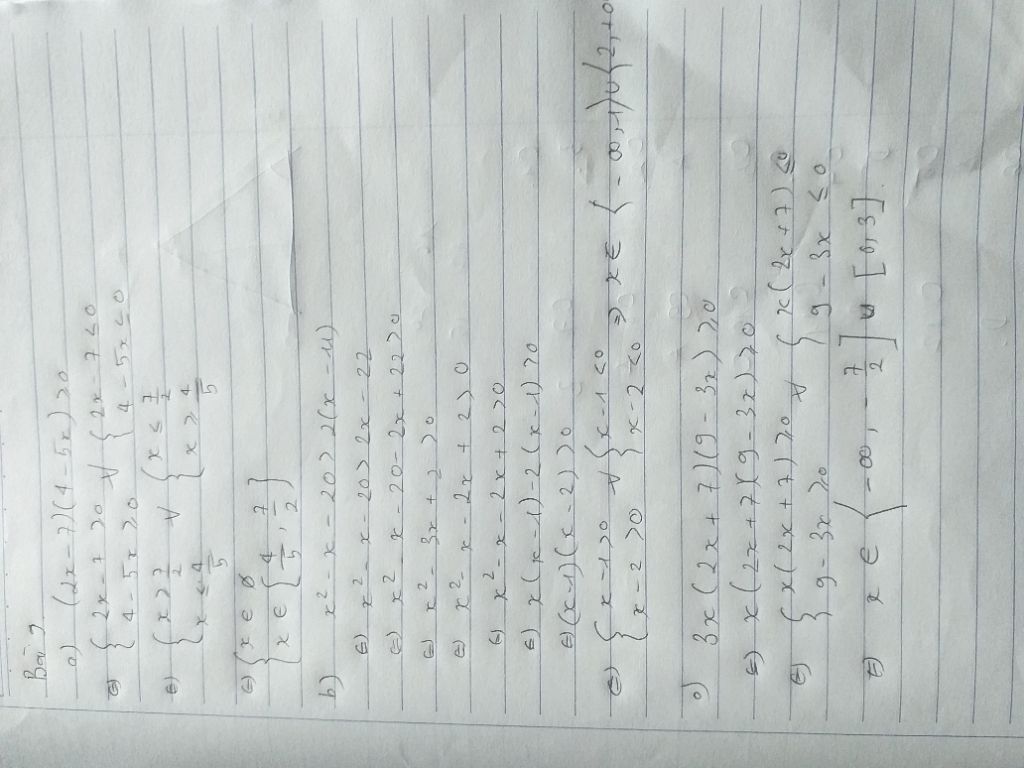 Bài 9
a) (2x - 7)(4 - 5x) ≥ 0
⇔ { 2x - 7 ≥ 0 ∀ { 2x - 7 ≤ 0
4 - 5x ≥ 0 4 - 5x ≤ 0
⇔ { x ≥ 7/2 ∀ { x ≤ 7/2
x ≤ 4/5 x ≥ 4/5
⇔ { x ∈ ∅
x ∈ { 4/5 , 7/2 }
b) x² - x - 20 > 2(x - 11)
⇔ x² - x - 20 > 2x - 22
⇔ x² - x - 20 - 2x + 22 > 0
⇔ x² - 3x + 2 > 0
⇔ x² - x - 2x + 2 > 0
⇔ x² - x - 2x + 2 > 0
⇔ x(x - 1) - 2(x - 1) > 0
⇔ (x - 1)(x - 2) > 0
⇔ { x - 1 > 0 ∀ { x - 1 < 0 ⇒ x ∈ { -∞, 1) ∪ {2, +∞
x - 2 > 0 x - 2 < 0
c) 3x(2x + 7)(9 - 3x) ≥ 0
⇔ x(2x + 7)(9 - 3x) ≥ 0
⇔ { x(2x + 7) ≥ 0 ∀ { x(2x + 7) ≤ 0
9 - 3x ≥ 0 9 - 3x ≤ 0
⇔ x ∈ ( -∞, - 7/2 ] ∪ [ 0, 3 ]